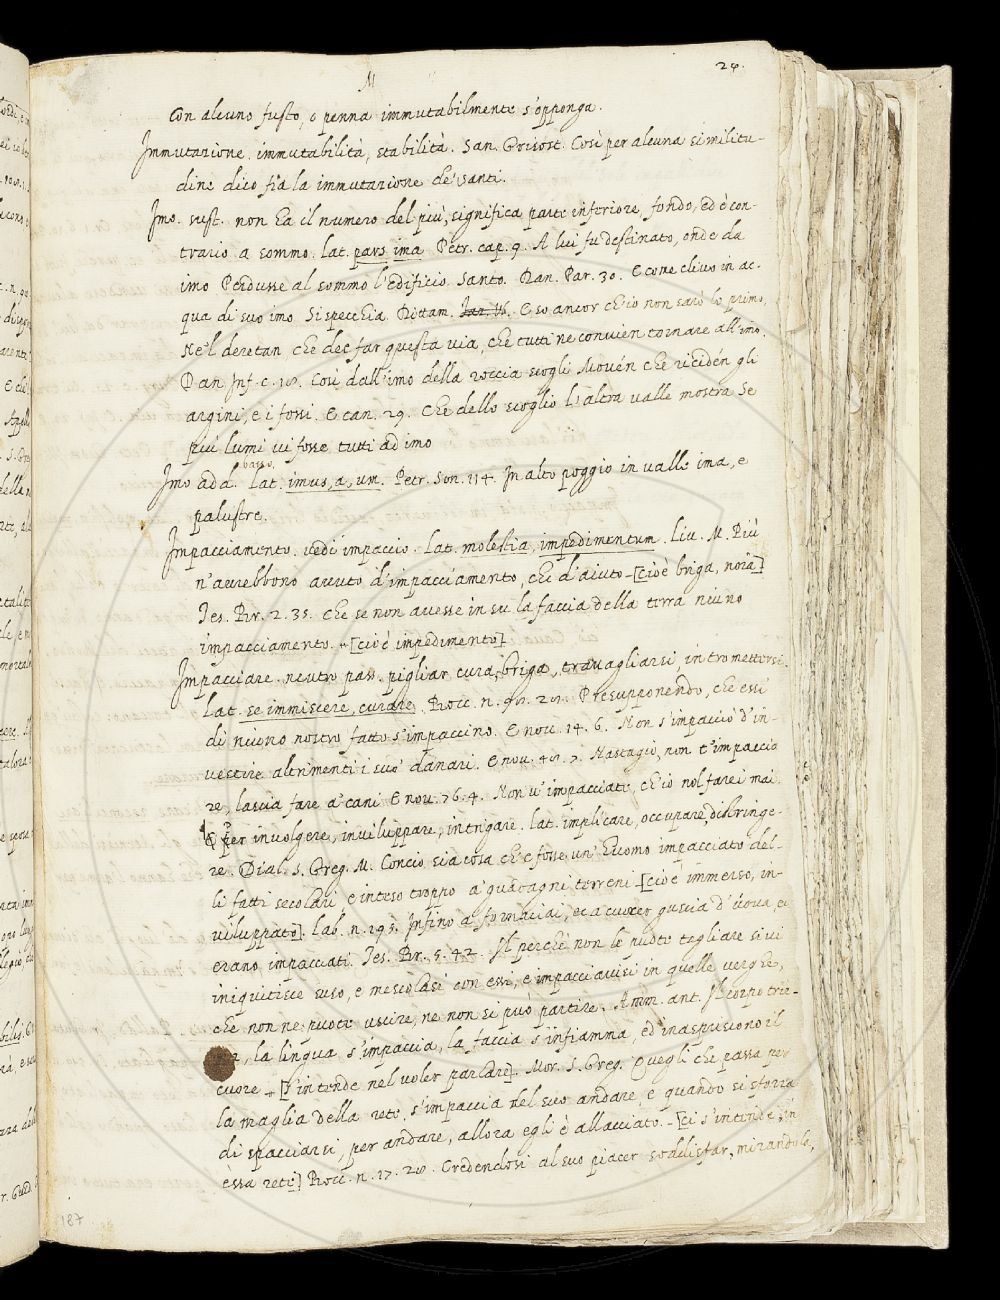 M
24.
con alcuno fusto, o penna immutabilmente s'opponga.
Immutazione. immutabilità, stabilità. San. Grisost. Così per alcuna similitu-
dine dico fia la immutazione de' santi.
Imo. sust. non ha il numero del più, significa parte inferiore, fondo, ed è con-
trario a sommo. Lat. pars ima. Petr. cap. 9. A lui fu destinato, onde da
imo Perdusse al sommo l'edificio santo. Dan. Par. 30. E come clivo in ac-
qua di suo imo Si specchia. Dittam. E so ancor ch'io non sarò lo primo,
Ne'l deretan che dee far questa via, che tutti ne convien tornare all'imo.
Dan Inf. c. 18. Così dall'imo della roccia scogli Movén che ricidén gli
argini, e i fossi. E can. 29. Che dello scoglio l'altra valle mostra Se
più lumi vi fosse tutti ad imo
Imo add. basso, Lat. imus, a, um. Petr. Son. 114. In alto poggio in valle ima, e
palustre.
Impacciamento. vedi impaccio. Lat. molestia, impedimentum. Liv. M. Più
n'avrebbono avuto d'impacciamento, che d'aiuto - [cioè briga, noia]
Tes. Br. 2. 35. che se non avesse in su la faccia della terra niuno
impacciamento. - [cioè impedimento]
Impacciare. neutro pass. pigliar cura, briga, travagliarsi, intromettersi.
Lat. se immiscere, curare. Bocc. n. 98. 28. Presupponendo, che essi
di niuno nostro fatto s'impaccino. E nov. 14. 6. Non s'impacciò d'in-
vestire altrimenti i suo' danari. E nov. 48. 7. Nastagio, non t'impaccia
re, lascia fare a' cani E nov. 76. 4. Non v'impacciate, ch'io nol farei mai
E per involgere, inviluppare, intrigare. Lat. implicare, occupare, distringe-
re. Dial. S. Greg. M. Concio sia cosa che fosse un'huomo impacciato del-
li fatti secolari e inteso troppo a' guadagni terreni - [cioè immerso, in-
viluppato]. Lab. n. 195. Infino a' fornaciai, e a cuocer guscia d'uova, ec
erano impacciati. Tes. Br. 5. 42. Il perchè non le puote tagliare si vi
iniquitisce suso, e mescolasi con essi, e impacciavisi in quelle verghe,
che non ne puote uscire, ne non si può partire. Amm. ant. Il corpo trie-
la lingua s'impaccia, la faccia s'infiamma, ed inaspriscono il
cuore - [s'intende nel voler parlare]. Mor. S. Greg. Quegli che passa per
la maglia della rete, s'impaccia nel suo andare, e quando si sforza
di spacciarsi, per andare, allora egli è allacciato. - [ci s'intende, in
essa rete] Bocc. n. 17. 20. Credendosi al suo piacer soddisfar, mirandola,
187